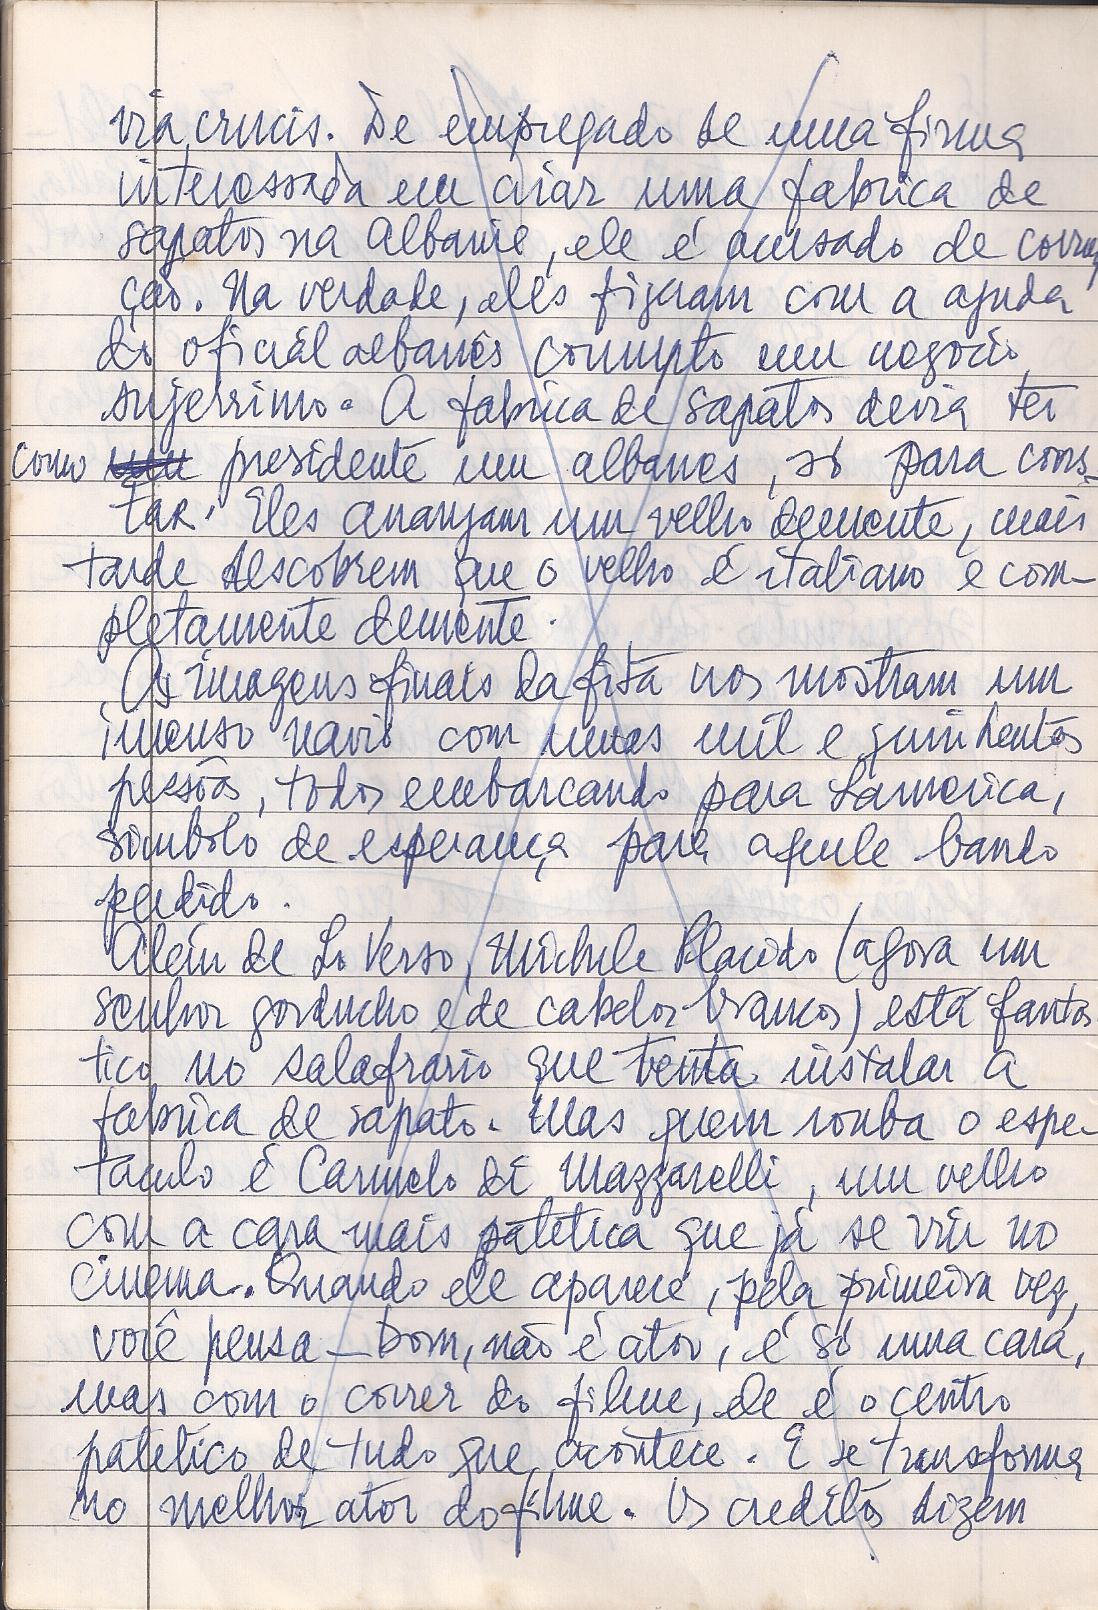 via crucis. De empregado de uma firma
interessada em criar uma fabrica de
sapatos na Albanie, ele é acusado de corrup
ção. Na verdade, eles fizeram com a ajuda
do oficial albanês corrupto um negocio
sujerrimo. A fabrica de sapatos devia ter
como presidente um albanes, só para cons-
tar. Eles arranjam um velho demente, mais
tarde descobrem que o velho é italiano e com-
pletamente demente.
As imagens finais da fita nos mostram um
imenso navio com umas mil e quinhentos
pessoas, todos embarcando para Lamerica,
simbolo de esperança para aquele bando
perdido.
Além de Lo Verso, Michele Placido (agora um
senhor gorducho e de cabelos brancos) está fantas
tico no salafrario que tenta instalar a
fabrica de sapato. Mas quem rouba o espe-
taculo é Carmelo di Mazzarelli, um velho
com a cara mais patetica que já se viu no
cinema. Quando ele aparece, pela primeira vez,
você pensa — bom, não é ator, é só uma cara,
mas com o correr do filme, ele é o centro
patetico de tudo que acontece. E se transforma
no melhor ator do filme. Os creditos dizem